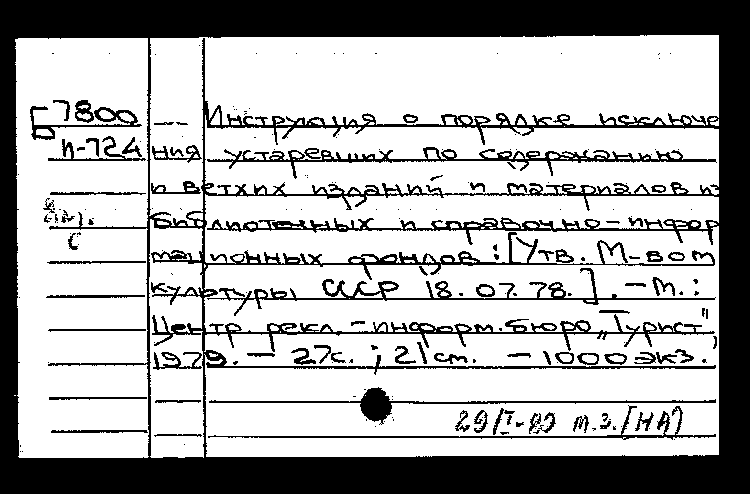 7800 — Инструкция о порядке исключе
п-724 ния устаревших по содержанию
и ветхих изданий и материалов из
библиотечных и справочно-инфор
мационных фондов : [Утв. М-вом
культуры СССР 18.07.78.]. - М.:
Центр. рекл.-информ. бюро "Турист",
1979. - 27с. ; 21см. - 1000 экз.
29/I-80 т.з. (НА)